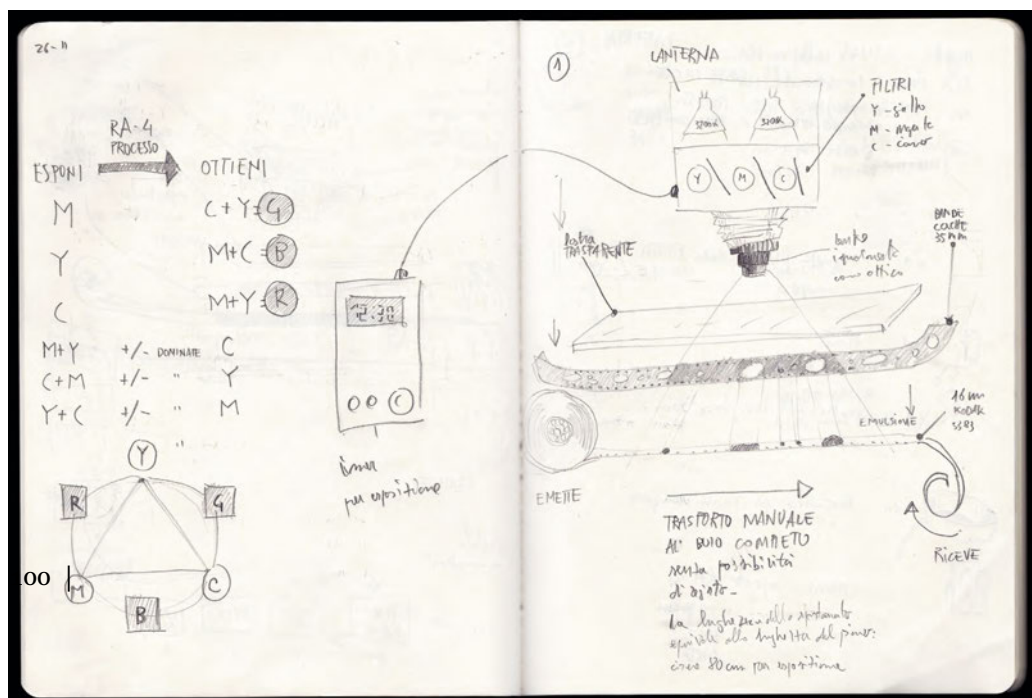 26-11
RA-4
PROCESSO
ESPONI
OTTIENI
M
C+Y=G
Y
M+C=B
C
M+Y=R
M+Y +/- DOMINATE C
C+M +/- " Y
Y+C +/- " M
"
Y
R
G
M
C
B
100
12:30
C
timer
per esposizione
1
LANTERNA
3200K
3200K
FILTRI
Y - giallo
M - magenta
C - ciano
Y
M
C
lastra
TRASPARENTE
BANDE
CACHE
35mm
banco
cono ottico
EMULSIONE
16mm
KODAK
5383
EMETTE
RICEVE
TRASPORTO MANUALE
AL BUIO COMPLETO
senza possibilità
di
La lunghezza dello spostamento
equivale alla lunghezza del piano:
circa 80 cm per esposizione